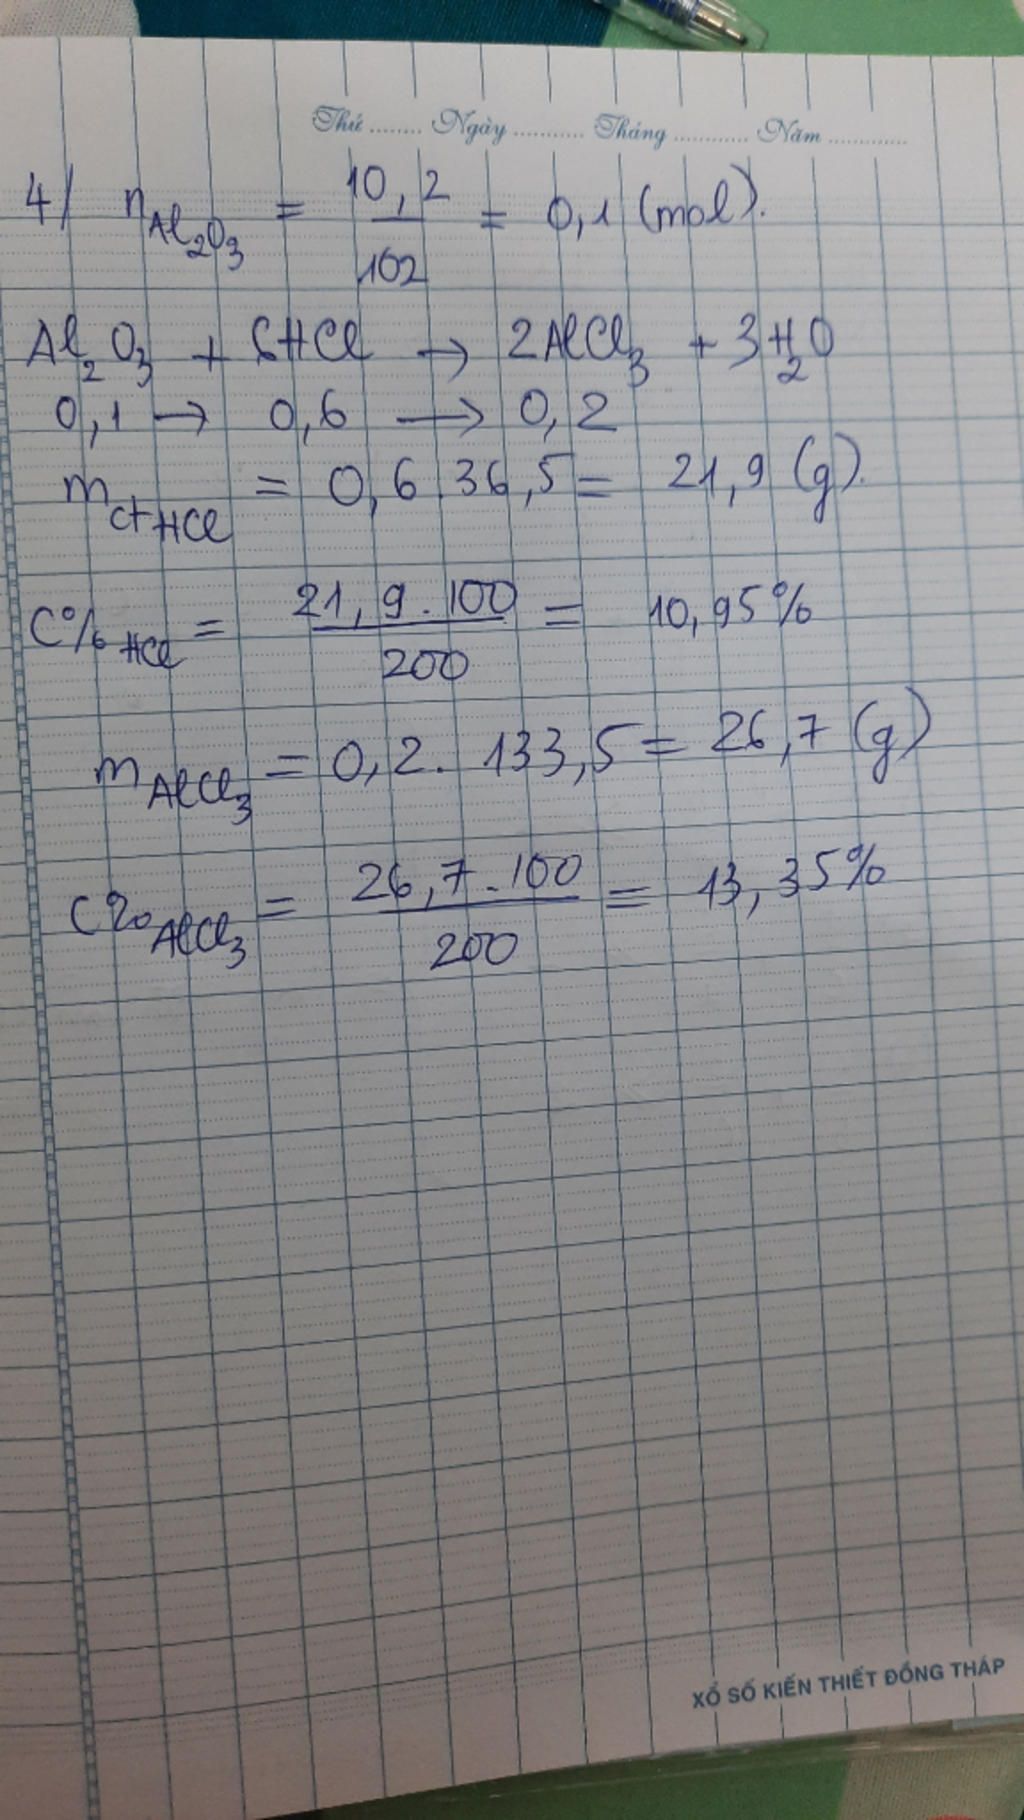 Thứ ........ Ngày ........... Tháng ........... Năm ............
4/ nAl₂O₃ = 10,2/102 = 0,1 (mol).
Al₂O₃ + 6HCl → 2AlCl₃ + 3H₂O
0,1 → 0,6 → 0,2
mct HCl = 0,6.36,5 = 21,9 (g).
C%HCl = 21,9.100/200 = 10,95%
mAlCl₃ = 0,2. 133,5 = 26,7 (g)
C%AlCl₃ = 26,7.100/200 = 13,35%
XỔ SỐ KIẾN THIẾT ĐỒNG THÁP